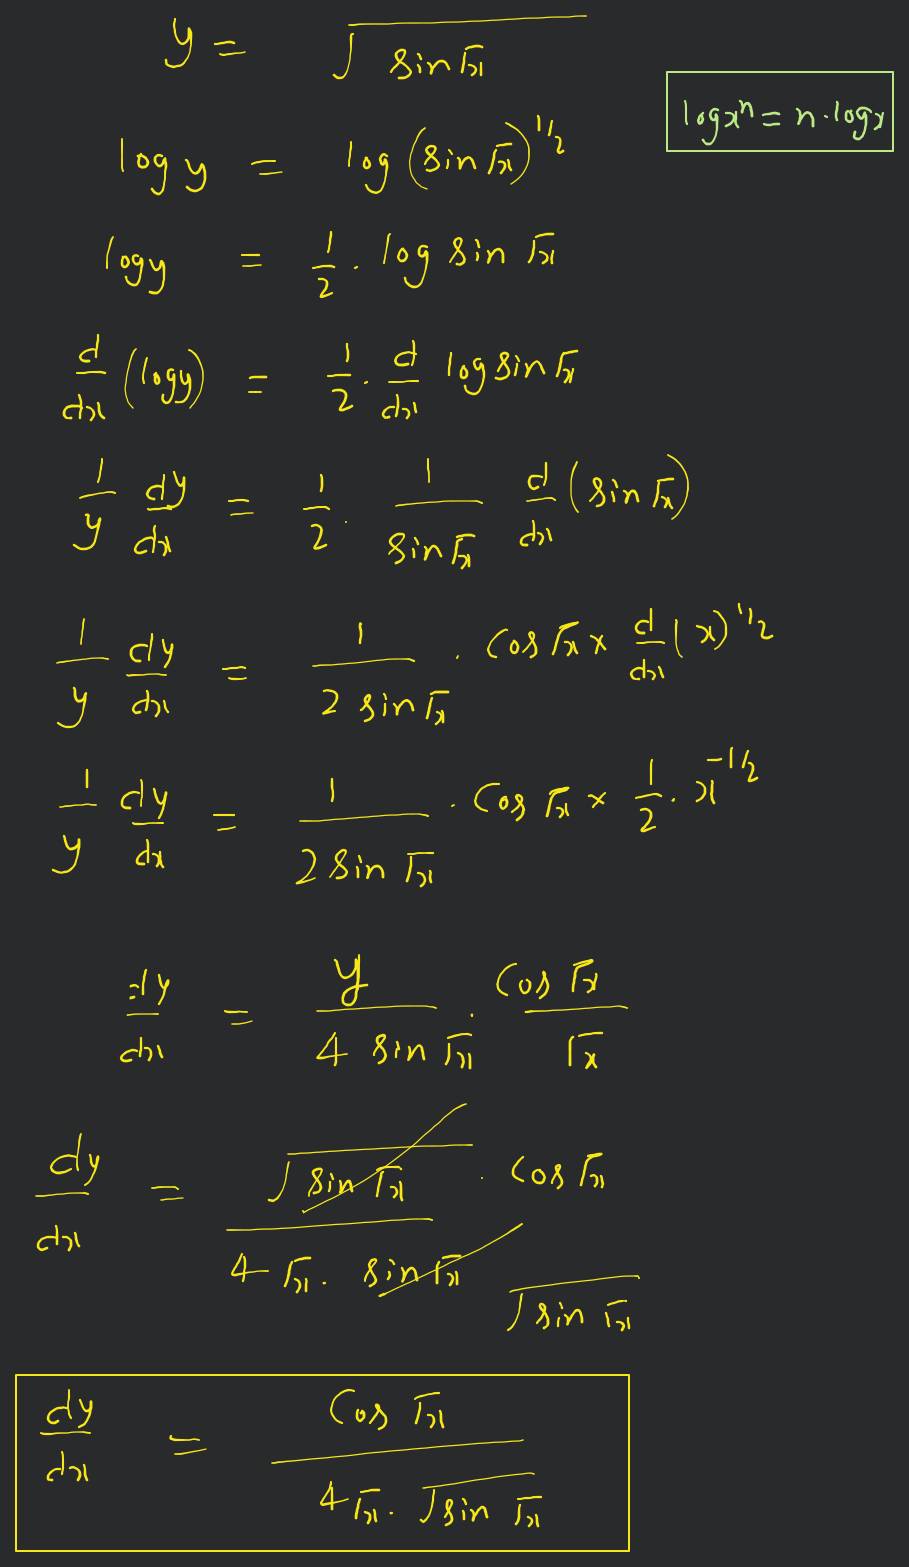 y = √(sin√x)
log xⁿ = n·log x
log y = log (sin √x)^1/2
log y = 1/2 · log sin √x
d/dx (log y) = 1/2 · d/dx log sin √x
1/y dy/dx = 1/2 · 1/(sin √x) d/dx (sin √x)
1/y dy/dx = 1/(2 sin √x) · cos √x × d/dx (x)^1/2
1/y dy/dx = 1/(2 sin √x) · cos √x × 1/2 · x^-1/2
dy/dx = y/(4 sin √x) · cos √x/√x
dy/dx = √(sin √x) · cos √x / (4 √x · sin √x) √(sin √x)
dy/dx = cos √x / (4 √x · √(sin √x))